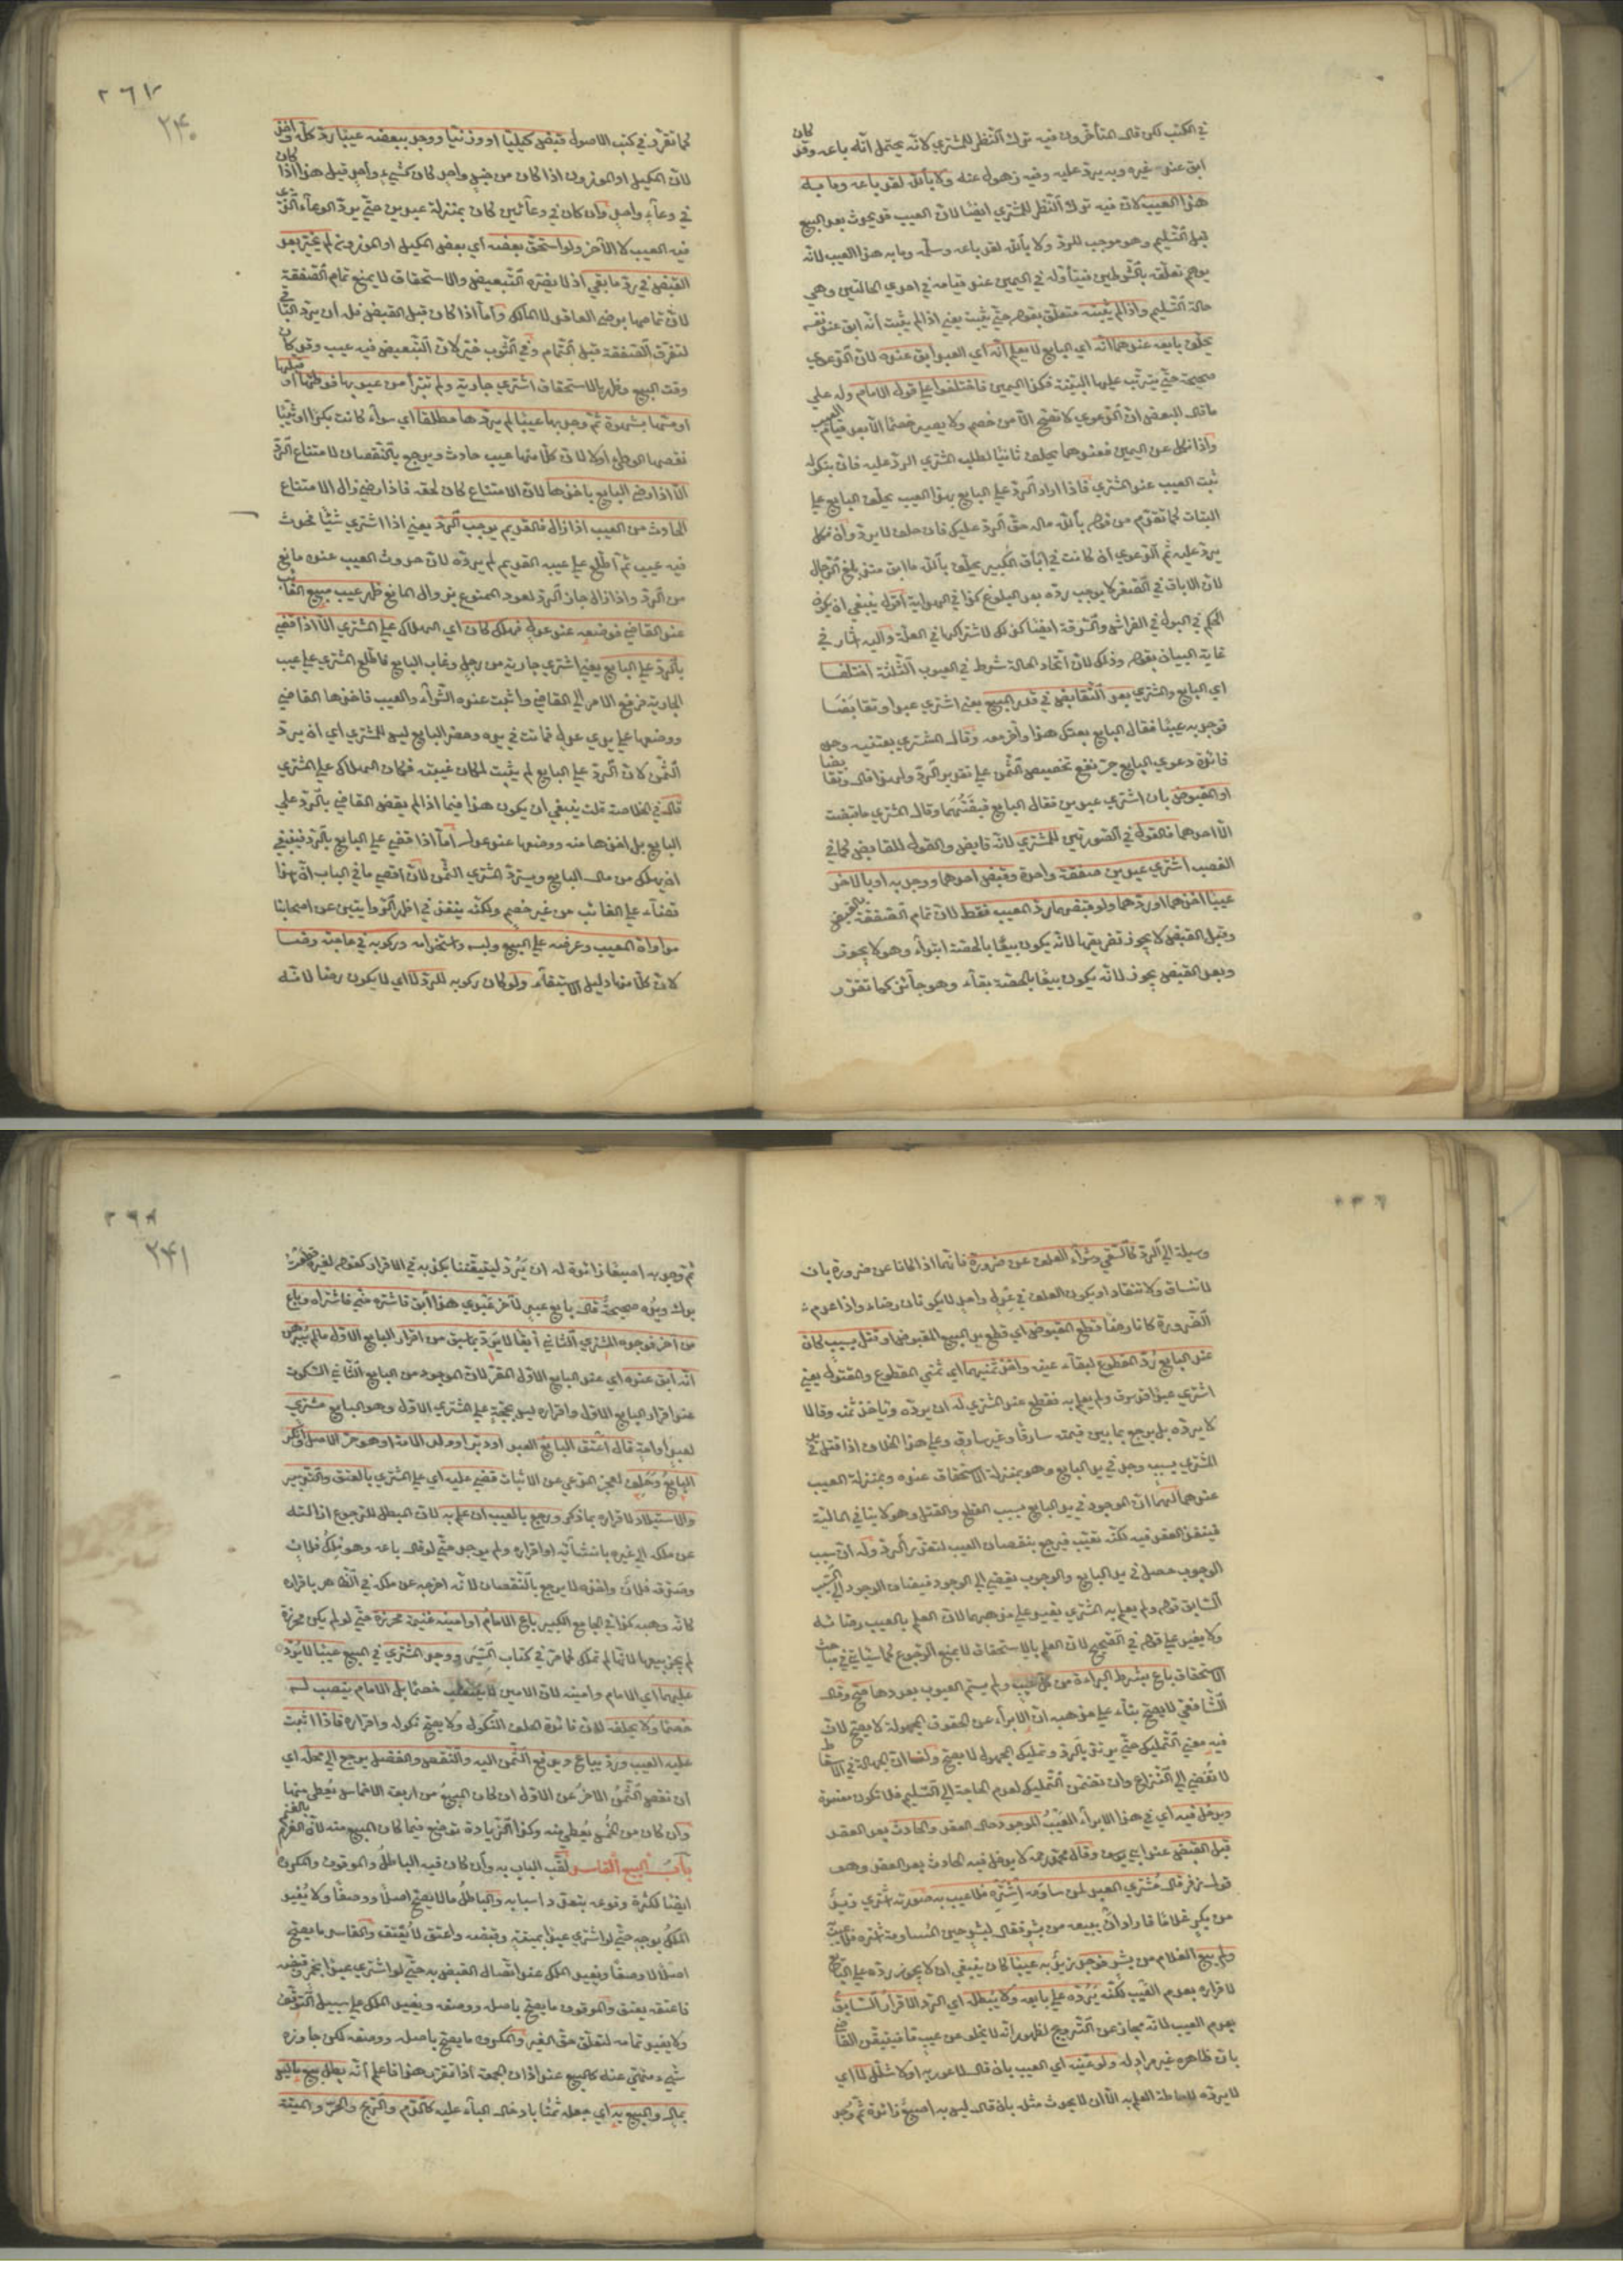 في الكتب لكن قال المتأخرون فيه ترك النظر للمشتري لانه يحتمل انه باعه وقد كان
ابق عند غيره وبه يرد عليه وفيه ذهول عنه ولا بالله لقد باعه وما به
هذا العيب لان فيه ترك النظر للمشتري ايضا لان العيب قد يحدث بعد البيع
قبل التسليم وهو موجب للرد ولا بالله لقد باعه وسلمه وما به هذا العيب لانه
يوهم تعلقه بالشرطين فيتأوله في اليمين عند قيامه في احدي الحالتين وهي
حالة التسليم واذا لم يثبته متعلق بقوله حتي يثبت يعني اذا لم يثبت انه ابق عنده نفسه
يحلف بايعه عندهما انه اي البايع لا يعلم انه اي العبد ابق عنده لان الدعوي
صحيحة حتي يترتب عليها البينة فكذا اليمين فاختلفوا علي قول الامام وله علي
ما قال البعض ان الدعوي لا تصح الا من خصم ولا يصير خصما الا بعد قيام العيب
واذا نكل عن اليمين فعندهما يحلف ثانيا لطلب المشتري الرد عليه فان بنكوله
ثبت العيب عند المشتري فاذا اراد الرد علي البايع بهذا العيب يحلف البايع علي
البتات كما تقدم من قوله بالله ماله حق الرد عليك فان حلف لا يرد وان نكل
يرد عليه ثم الدعوي ان كانت في اباق الكبير يحلف بالله ما ابق منذ بلغ الرجال
لان الاباق في الصغر لا يوجب رده بعد البلوغ كذا في الهداية اقول ينبغي ان يكون
الحكم في البول في الفراش والسرقة ايضا كذلك لاشتراكهما في العلة واليه اشار في
غاية البيان بقوله وذلك لان اتحاد الحالة شرط في العيوب الثلثة اختلفا
اي البايع والمشتري بعد التقابض في قدر المبيع يعني اشتري عبدا وتقابضا
فوجد به عيبا فقال البايع بعتك هذا وآخر معه وقال المشتري بعتنيه وحده
فائدة دعوي البايع جر نفع تخصيص الثمن علي تقدير الرد ولهذا قال وتقابضا
او المقبوض بان اشتري عبدين فقال البايع قبضتهما وقال المشتري ما قبضت
الا احدهما فالقول في الصورتين للمشتري لانه قابض والقول للقابض كما في
الغصب اشتري عبدين صفقة واحدة وقبض احدهما ووجد به او بالاخر
عيبا اخذهما او ردهما ولو قبضهما رد المعيب فقط لان تمام الصفقة بالقبض
وقبل القبض لا يجوز تفريقها لانه يكون بيعا بالحصة ابتداء وهو لا يجوز
وبعد القبض يجوز لانه يكون بيعا بالحصة بقاء وهو جائز كما تقرر
٢٦٧
٢٤٠
كما تقرر في كتب الاصول قبض كيليا او وزنيا ووجد ببعضه عيبا رد كله او اخذ
لان المكيل او الموزون اذا كان من جنس واحد كان كشيء واحد قيل هذا اذا كان
في وعاء واحد وان كان في وعائين كان بمنزلة عبدين حتي يرد الوعاء الذي
فيه العيب لا الآخر ولو استحق بعضه اي بعض المكيل او الموزون لم يخير بعد
القبض في رد ما بقي اذ لا يضره التبعيض والاستحقاق لا يمنع تمام الصفقة
لان تمامها برضي العاقد لا المالك واما اذا كان قبل القبض فله ان يرد الباقي
لتفرق الصفقة قبل التمام وفي الثوب خير لان التبعيض فيه عيب وقد كان
وقت البيع وظهر بالاستحقاق اشتري جارية ولم يتبرأ من عيوبها فوطئها او قبلها
او مسها بشهوة ثم وجد بها عيبا لم يردها مطلقا اي سواء كانت بكرا او ثيبا
نقصها الوطئ او لا لان كلا منها عيب حادث ويرجع بالنقصان لامتناع الرد
الا اذا رضي البايع باخذها لان الامتناع كان لحقه فاذا رضي زال الامتناع
الحادث من العيب اذا زال فالقديم يوجب الرد يعني اذا اشتري شيئا فحدث
فيه عيب ثم اطلع علي عيبه القديم لم يرده لان حدوث العيب عنده مانع
من الرد واذا زال جاز الرد لعود الممنوع بزوال المانع ظهر عيب مبيع الغائب
عند القاضي فوضعه عند عدل فهلك كان اي الهلاك علي المشتري الا اذا قضي
بالرد علي البايع يعني اشتري جارية من رجل وغاب البايع فاطلع المشتري علي عيب
الجارية فرفع الامر الي القاضي واثبت عنده الشراء والعيب فاخذها القاضي
ووضعها علي يدي عدل فماتت في يده وحضر البايع ليس للمشتري اي ان يرد
الثمن لان الرد علي البايع لم يثبت لمكان غيبته فكان الهلاك علي المشتري
قال في الخلاصة قلت ينبغي ان يكون هذا فيما اذا لم يقض القاضي بالرد علي
البايع بل اخذها منه ووضعها عند عدل اما اذا قضي علي البايع بالرد فينبغي
ان يهلك من مال البايع ويسترد المشتري الثمن لان اقصي ما في الباب ان هذا
قضاء علي الغائب من غير خصم ولكنه ينفذ في اظهر الروايتين عن اصحابنا
مداواة المعيب وعرضه علي البيع ولبسه واستخدامه وركوبه في حاجته رضا
لان كلا منها دليل الاستبقاء ولو كان ركوبه للرد لا اي لا يكون رضا لانه
وسيلة الي الرد كالسقي وشراء العلف عن ضرورة فانهما اذا كانا عن ضرورة بان
لا تنساق ولا تنقاد او يكون العلف في عدل واحد لا يكونان رضاء واذا عدم
الضرورة كانا رضا قطع المقبوض اي قطع يد المبيع المقبوض او قتل بسبب كان
عند البايع رد المقطوع لبقاء عينه واخذ ثمنيهما اي ثمني المقطوع والمقتول يعني
اشتري عبدا قد سرق ولم يعلم به فقطع عند المشتري له ان يرده ويأخذ ثمنه وقالا
لا يرده بل يرجع بما بين قيمته سارقا وغير سارق وعلي هذا الخلاف اذا قتل في يد
المشتري بسبب وجد في يد البايع وهو بمنزلة الاستحقاق عنده وبمنزلة العيب
عندهما لهما ان الموجود في يد البايع سبب القطع والقتل وهو لا ينافي المالية
فينفذ العقد فيه لكنه تعيب فيرجع بنقصان العيب لتعذر الرد وله ان سبب
الوجوب حصل في يد البايع والوجوب يفضي الي الوجود فيضاف الوجود الي السبب
السابق قوله ولم يعلم به المشتري يفيد علي مذهبهما لان العلم بالعيب رضا به
ولا يفيد علي قوله في الصحيح لان العلم بالاستحقاق لا يمنع الرجوع كما سيأتي في مباحث
الاستحقاق باع بشرط البراءة من كل عيب ولم يسم العيوب بعددها صح وقال
الشافعي لا يصح بناء علي مذهبه ان الابراء عن الحقوق المجهولة لا يصح لان
فيه معني التمليك حتي يرتد بالرد وتمليك المجهول لا يصح ولنا ان الجهالة في الاسقاط
لا تفضي الي التنازع وان تضمن التمليك لعدم الحاجة الي التسليم فلا تكون مفسدة
ويدخل فيه اي في هذا الابراء العيب الموجود حال العقد والحادث بعد العقد
قبل القبض عند ابي يوسف وقال محمد رحمه لا يدخل فيه الحادث بعد العقد وهو
قول زفر قال مشتري العبد لمن ساومه اشتره فلا عيب به صورته اشتري زيد
من بكر غلاما فاراد ان يبيعه من بشر فقال لبشر حين المساومة اشتره فلا عيب
ولم يبع الغلام من بشر فوجد زيد به عيبا كان ينبغي ان لا يجوز رده علي البايع
لاقراره بعدم العيب لكنه يرده علي بايعه ولا يبطله اي الرد الاقرار السابق
بعدم العيب لانه مجاز عن الترويج لظهور انه لا يخلو عن عيب ما فيتيقن القاضي
بان ظاهره غير مراد له ولو عينه اي العيب بان قال لا عور به او لا شلل لا اي
لا يرده لاحاطة العلم به الا ان لا يحدث مثله بان قال ليس به اصبع زائدة ثم وجد
٢٦٨
٢٤١
ثم وجد به اصبعا زائدة له ان يرد لتيقننا بكذبه في الاقرار كقوله لغيره قطعت
يدك ويده صحيحة قال بايع عبد لآخر عبدي هذا آبق فاشتره مني فاشتراه وباع
من آخر فوجده المشتري الثاني آبقا لا يرد بما سبق من اقرار البايع الاول ما لم يبرهن
انه ابق عنده اي عند البايع الاول المقر لان الموجود من البايع الثاني السكوت
عند اقرار البايع الاول واقراره ليس بحجة علي المشتري الاول وهو البايع مشتري
لعبد او امة قال اعتق البايع العبد او دبر او ولد الامة او هو حر الاصل وانكر
البايع وحلف لعجز المدعي عن الاثبات قضي عليه اي علي المشتري بالعتق والتدبير
والاستيلاد لاقراره بما ذكر ورجع بالعيب ان علم به لان المبطل للرجوع ازالته
عن ملكه الي غيره بانشائه او اقراره ولم يوجد حتي لو قال باعه وهو ملك فلان
وصدقه فلان واخذه لا يرجع بالنقصان لانه اخرجه عن ملكه في الظاهر باقراره
كانه وهبه كذا في الجامع الكبير باع الامام او امينه غنيمة محرزة حتي لو لم يكن محرزة
لم يجز بيعها لانها لم تملك كما مر في كتاب السير ووجد المشتري في المبيع عيبا لا يرد
عليهما اي الامام وامينه لان الامين لا ينتصب خصما بل الامام ينصب له
خصما ولا يحلفه لان فائدة الحلف النكول ولا يصح نكوله واقراره فاذا اثبت
عليه العيب ورد يباع ويدفع الثمن اليه والنقص والفضل يرجع الي محله اي
ان نقص الثمن الآخر عن الاول ان كان المبيع من اربعة الاخماس يعطي منها
وان كان من الخمس يعطي منه وكذا الزيادة توضع فيما كان المبيع منه لان الغرم بالغنم
باب البيع الفاسد لقب الباب به وان كان فيه الباطل والموقوف والمكروه
ايضا لكثرة وقوعه بتعدد اسبابه والباطل ما لا يصح اصلا ووصفا ولا يفيد
الملك بوجه حتي لو اشتري عبدا بميتة وقبضه واعتق لا يعتق والفاسد ما يصح
اصلا لا وصفا ويفيد الملك عند اتصال القبض به حتي لو اشتري عبدا بخمر وقبضه
فاعتقه يعتق والموقوف ما يصح باصله ووصفه ويفيد الملك علي سبيل التوقف
ولا يفيد تمامه لتعلق حق الغير والمكروه ما يصح باصله ووصفه لكن جاوره
شيء منهي عنه كالبيع عند اذان الجمعة اذا تقرر هذا فاعلم انه بطل بيع ما ليس
بمال والبيع به اي جعله ثمنا بادخال الباء عليه كالدم والريح والحر والميتة